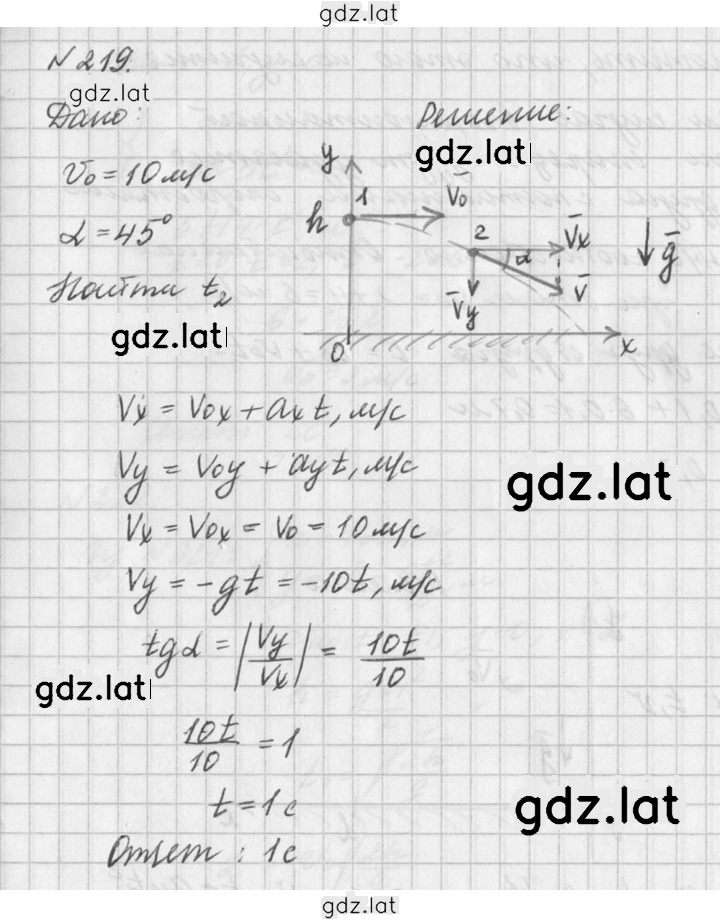 gdz.lat
№ 219.
gdz.lat
Дано:
Решение:
gdz.lat
V₀ = 10 м/с
α = 45°
Найти t₂
gdz.lat
y
h 1 V̄₀
2 V̄x
α V̄ ḡ
V̄y
0 x
Vx = V₀x + axt, м/с
Vy = V₀y + ayt, м/с
gdz.lat
Vx = V₀x = V₀ = 10 м/с
Vy = -gt = -10t, м/с
tgα = |Vy/Vx| = 10t/10
gdz.lat
10t/10 = 1
t = 1 с
gdz.lat
Ответ: 1 с
gdz.lat